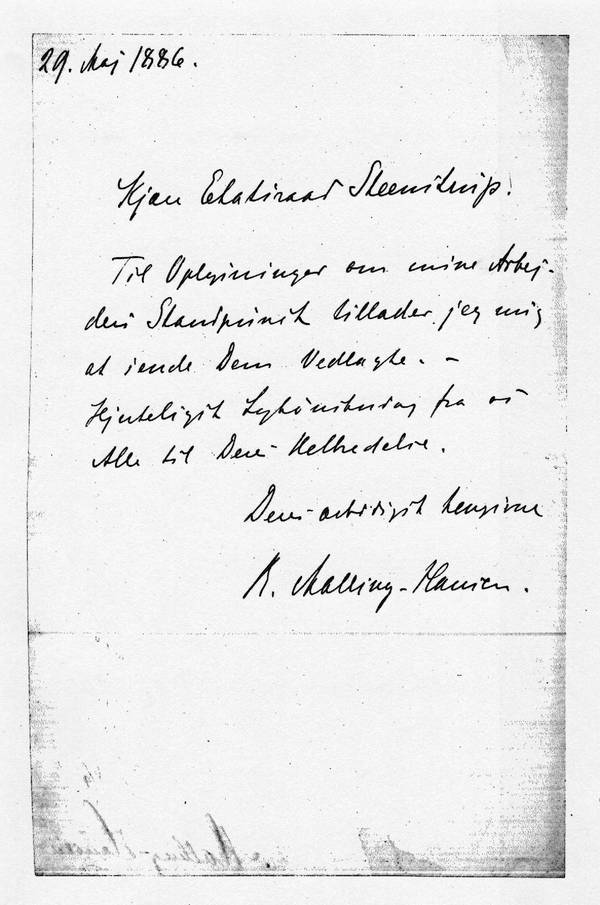 29. Maj 1886.
Kjære Etatsraad Steenstrup!
Til Oplysninger om mine Arbej-
ders Standpunkt tillader jeg mig
at sende Dem Vedlagte. –
Hjerteligst Lykønskning fra os
Alle til Deres Helbredelse.
Deres ærbødigst hengivne
R. Malling-Hansen.